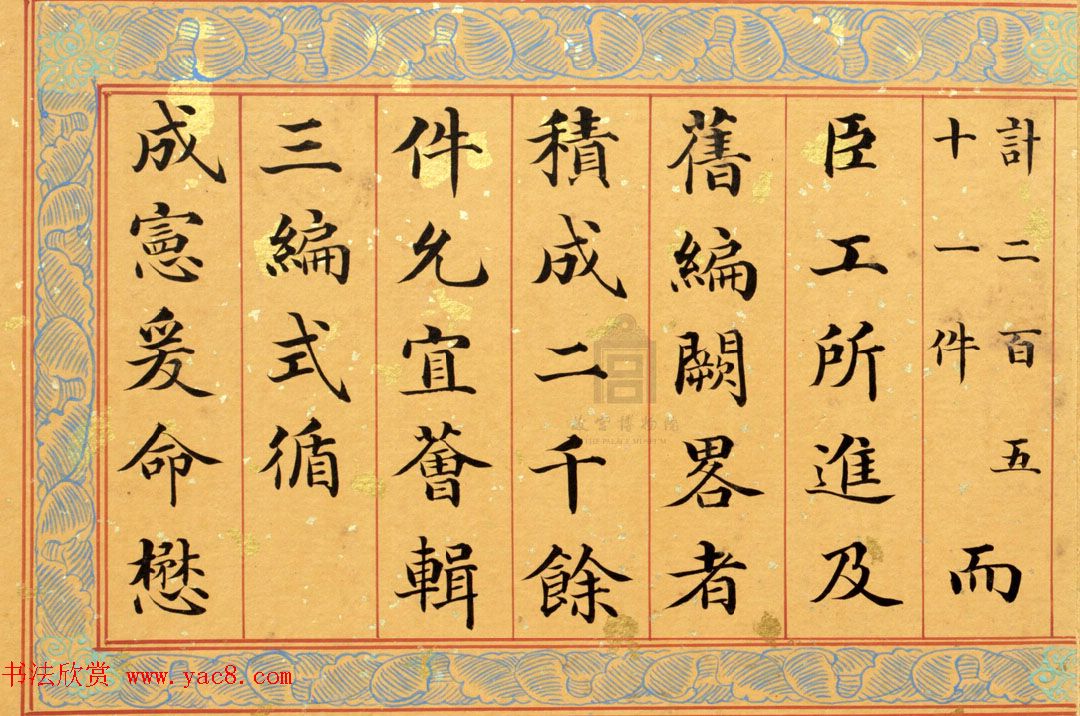 計二百五
十一件
而
臣工所進及
舊編闕畧者
積成二千餘
件允宜薈輯
三編式循
成憲爰命懋
故宮博物院
THE PALACE MUSEUM
书法欣赏 www.yac8.com